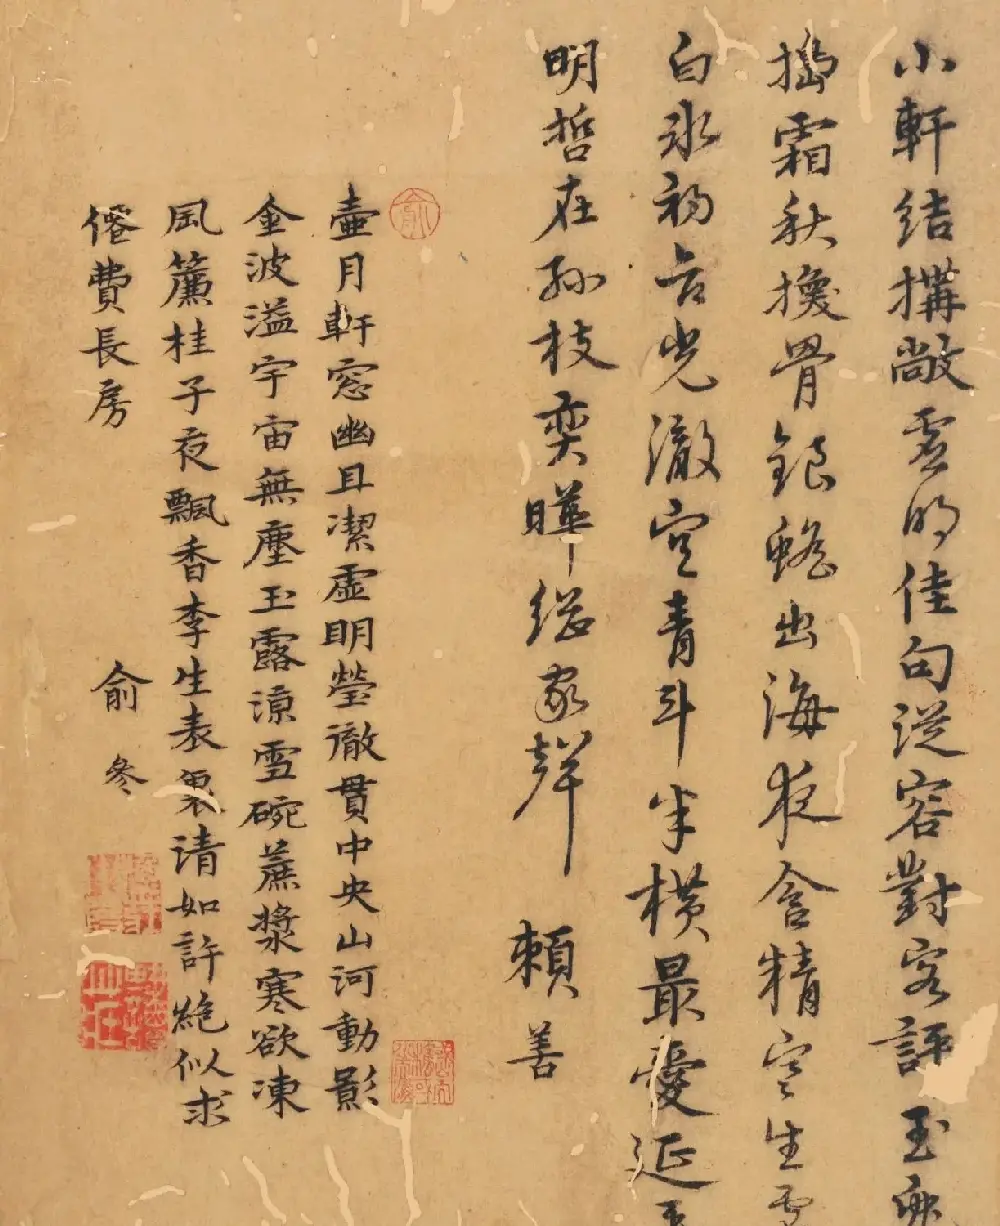 小軒結搆敞虛明佳句從容對客評玉兔
搗霜秋換骨銀蟾出海夜含精寒生虛
白氷初合光徹空青斗半橫最愛延
明哲在孫枝奕曄繼家聲 賴善
壷月軒窓幽且潔虛明瑩徹貫中央山河動影
金波溢宇宙無塵玉露凉雪碗蔗漿寒欲凍
風簾桂子夜飄香李生表裏請如許絶似求
僊費長房
俞參
俞